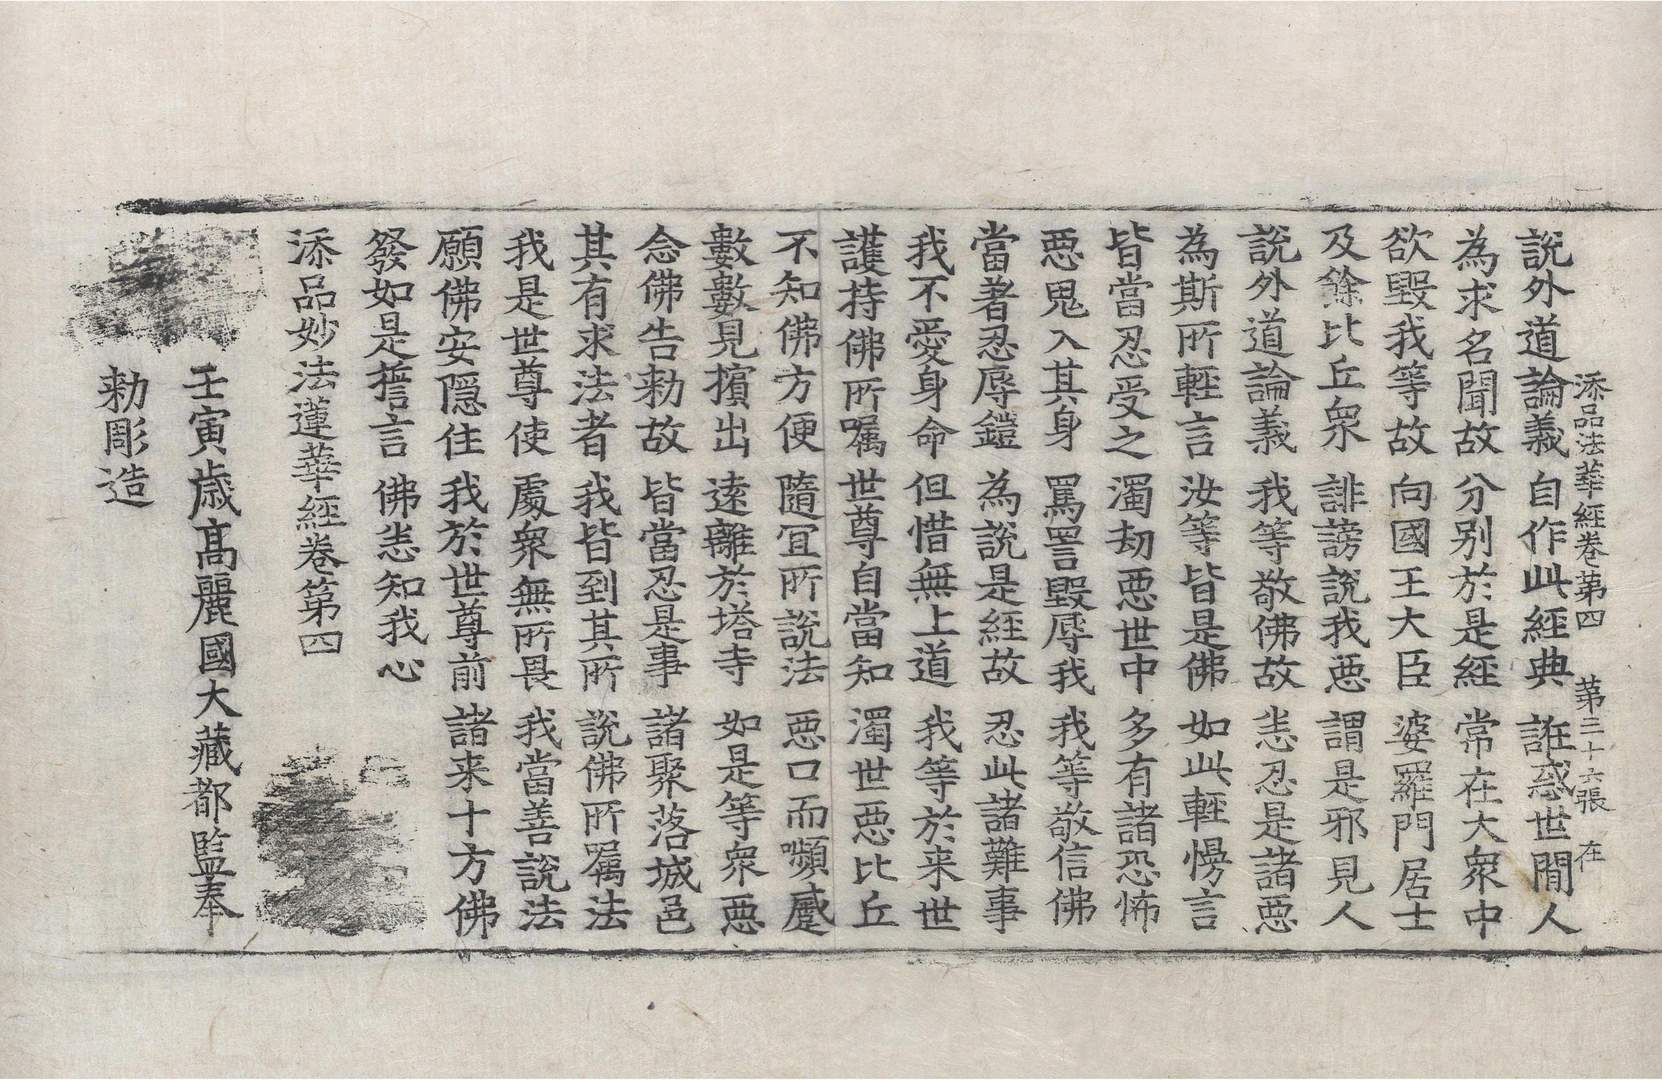 添品法華経卷第四 第三十六張 在
說外道論義 自作此經典 誑惑世間人
為求名聞故 分别於是經 常在大衆中
欲毀我等故 向國王大臣 婆羅門居士
及餘比丘衆 誹謗說我惡 謂是邪見人
說外道論義 我等敬佛故 悉忍是諸惡
為斯所輕言 汝等皆是佛 如此輕慢言
皆當忍受之 濁劫惡世中 多有諸恐怖
惡鬼入其身 罵詈毀辱我 我等敬信佛
當著忍辱鎧 為說是經故 忍此諸難事
我不愛身命 但惜無上道 我等於来世
護持佛所囑 世尊自當知 濁世惡比丘
不知佛方便 隨冝所說法 惡口而嚬蹙
數數見擯出 遠離於塔寺 如是等衆惡
念佛告勑故 皆當忍是事 諸聚落城邑
其有求法者 我皆到其所 說佛所囑法
我是世尊使 處衆無所畏 我當善說法
願佛安隱住 我於世尊前 諸来十方佛
發如是誓言 佛悉知我心
添品妙法蓮華經卷第四
壬寅歳高麗國大藏都監奉
勑彫造